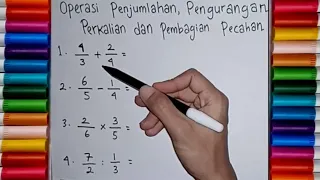 Operasi Penjumlahan, Pengurangan
Perkalian dan Pembagian Pecahan
1. 4/3 + 2/4 =
2. 6/5 - 1/4 =
3. 2/6 × 3/5 =
4. 7/2 : 1/3 =